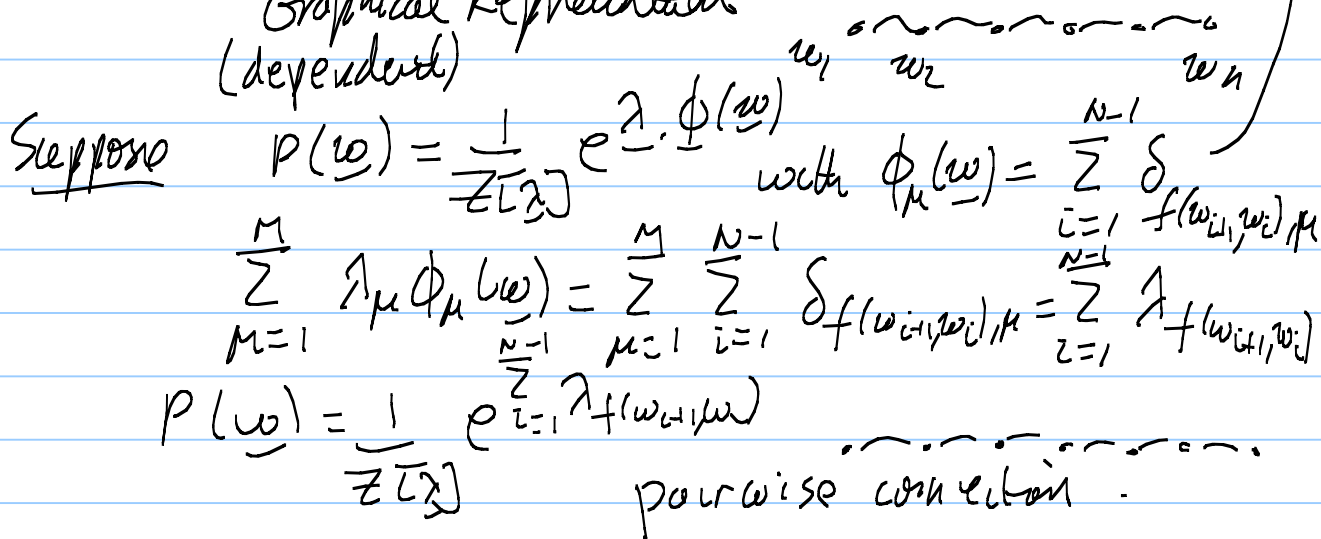 Graphical Representation
(dependent) w_1 w_2 w_n
Suppose P(\underline{w}) = \frac{1}{Z[\underline{λ}]} e^{\underline{λ}·\underline{ϕ}(\underline{w})} with ϕ_μ(\underline{w}) = \sum_{i=1}^{N-1} δ_{f(w_{i+1},w_i),μ}
\sum_{μ=1}^{M} λ_μ ϕ_μ(\underline{w}) = \sum_{μ=1}^{M} \sum_{i=1}^{N-1} δ_{f(w_{i+1},w_i),μ} = \sum_{i=1}^{N-1} λ_{f(w_{i+1},w_i)}
P(\underline{w}) = \frac{1}{Z[\underline{λ}]} e^{\sum_{i=1}^{N-1} λ_{f(w_{i+1},w_i)}}
pairwise connection.